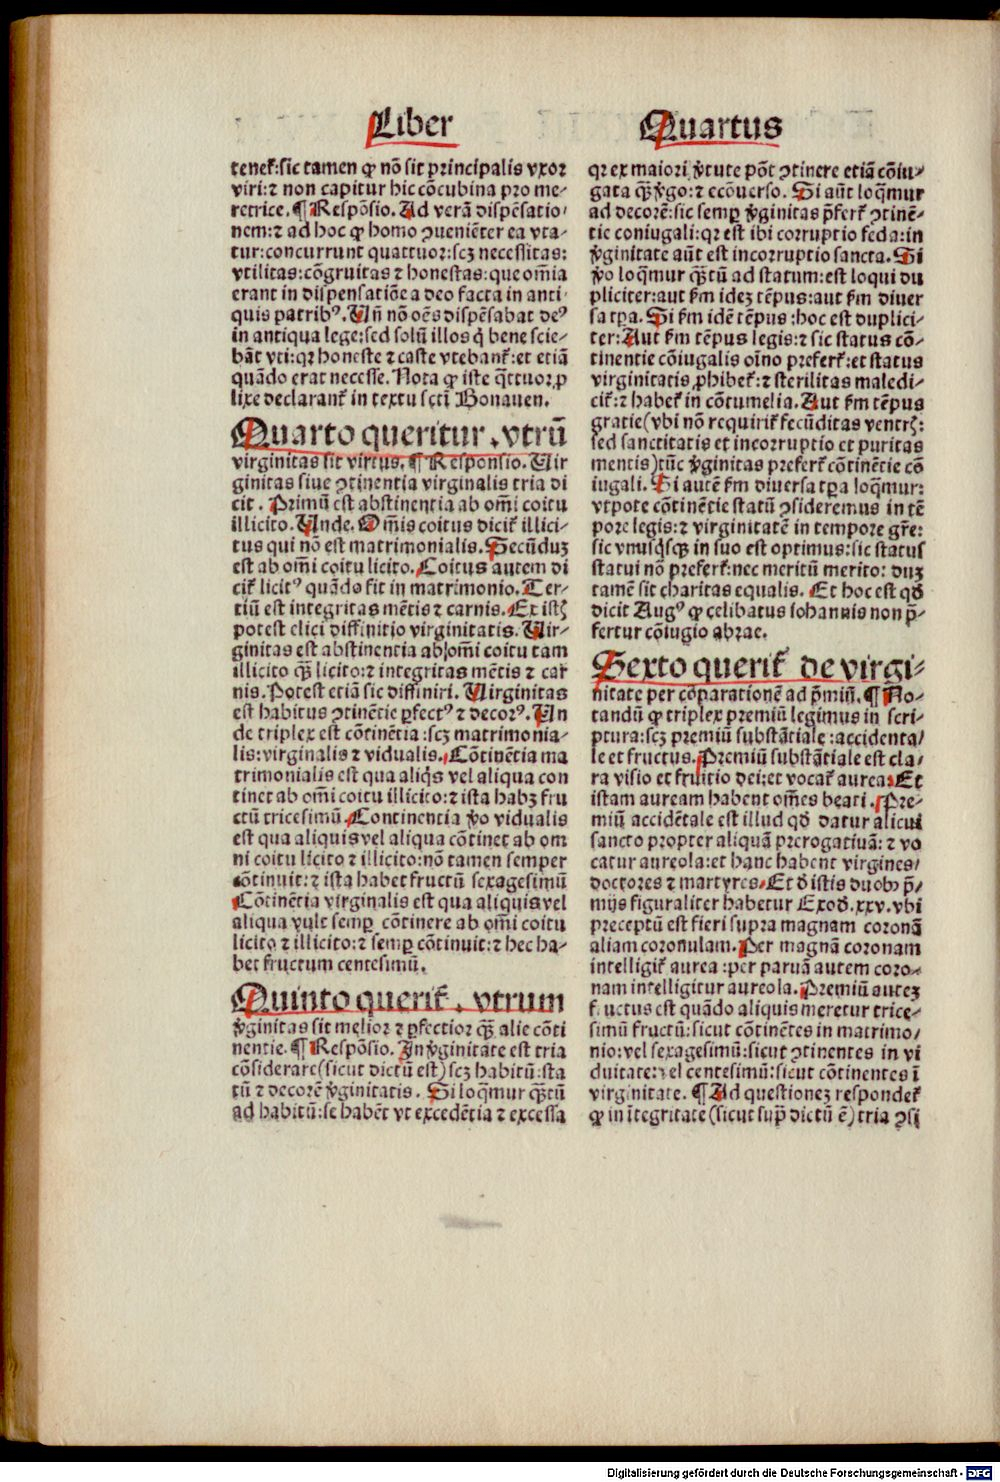 Liber
Quartus
tenet᷑:sic tamen ꝙ nõ sit principalis vxor
viri:⁊ non capitur hic cõcubina pro me⸗
retrice. ¶ Respõsio. Ad verã dispẽsatio⸗
nem:⁊ ad hoc ꝙ homo ꝯueniẽter ea vta⸗
tur:concurrunt quattuor:scꝫ necessitas:
vtilitas:cõgruitas ⁊ honestas:que om̃ia
erant in dispensatiõe a deo facta in anti⸗
quis patribꝰ. Uñ nõ oẽs dispẽsabat deꝰ
in antiqua lege:sed solũ illos q̇ bene scie⸗
bãt vti:qꝛ honeste ⁊ caste vtebant᷑:et etiã
quãdo erat necesse. Nota ꝙ iste q̃ttuor ꝓ
lixe declarant᷑ in textu sctĩ Bonauen.
Quarto queritur . vtrũ
virginitas sit virtus. ¶ Responsio. Uir
ginitas siue ꝯtinentia virginalis tria di
cit. Primũ est abstinentia ab om̃i coitu
illicito. Unde. Om̃is coitus dicit᷑ illici⸗
tus qui nõ est matrimonialis. Secũduꝫ
est ab om̃i coitu licito. Coitus autem di
cit᷑ licitꝰ quãdo fit in matrimonio. Ter⸗
tiũ est integritas mẽtis ⁊ carnis. Ex istꝭ
potest elici diffinitio virginitatis. Uir⸗
ginitas est abstinentia ab om̃i coitu tam
illicito q̃ꝫ licito:⁊ integritas mẽtis ⁊ car
nis. Potest etiã sic diffiniri. Uirginitas
est habitus ꝯtinẽtie ꝑfectꝰ ⁊ decorꝰ. Un
de triplex est cõtinẽtia :scꝫ matrimonia⸗
lis:virginalis ⁊ vidualis. Cõtinẽtia ma
trimonialis est qua aliq̇s vel aliqua con
tinet ab om̃i coitu illicito:⁊ ista habꝫ fru
ctũ tricesimũ. Continentia ṽo vidualis
est qua aliquis vel aliqua cõtinet ab om
ni coitu licito ⁊ illicito:nõ tamen semper
cõtinuit:⁊ ista habet fructũ sexagesimũ
Cõtinẽtia virginalis est qua aliquis vel
aliqua vult semꝑ cõtinere ab om̃i coitu
licito ⁊ illicito:⁊ semꝑ cõtinuit:⁊ hec ha⸗
bet fructum centesimũ.
Quinto querit᷑ . vtrum
ṽginitas sit melior ⁊ ꝑfectior q̃ꝫ alie cõti
nentie. ¶ Respõsio. In ṽginitate est tria
cõsiderare(sicut dictũ est)scꝫ habitũ:sta
tũ ⁊ decorẽ ṽginitatis . Si loq̃mur q̃ꝫtũ
ad habitũ:se habẽt vt excedẽtia ⁊ excessa
qꝛ ex maiori ṽtute põt ꝯtinere etiã cõiu⸗
gata q̃ꝫ ṽgo:⁊ ecõuerso. Si aũt loq̃mur
ad decorẽ:sic semꝑ ṽginitas p̃fert᷑ ꝯtinẽ⸗
tie coniugali:qꝛ est ibi corruptio feda:in
ṽginitate aũt est incorruptio sancta. Si
ṽo loq̃mur q̃ꝫtũ ad statum:est loqui du
pliciter:aut ẜm ideꝫ tẽpus:aut ẜm diuer
sa tꝑa. Si ẜm idẽ tẽpus :hoc est duplici⸗
ter:Aut ẜm tẽpus legis:⁊ sic status cõ⸗
tinentie cõiugalis oĩno prefert᷑:et status
virginitatis ꝓhibet᷑:⁊ sterilitas maledi⸗
cit᷑:⁊ habet᷑ in cõtumelia. Aut ẜm tẽpus
gratie(vbi nõ requirit᷑ fecũditas ventrꝭ:
sed sanctitatis et incorruptio et puritas
mentis)tũc ṽginitas prefert᷑ cõtinẽtie cõ
iugali. Si autẽ ẜm diuersa tꝑa loq̃mur:
vtpote cõtinẽtie statũ ꝯsideremus in tẽ
pore legis:⁊ virginitatẽ in tempore gr̃e:
sic vnusq̇sqꝫ in suo est optimus:sic status
statui nõ prefert᷑:nec meritũ merito: duꝫ
tamẽ sit charitas equalis. Et hoc est qđ
dicit Augꝰ ꝙ celibatus iohannis non p̃⸗
fertur cõiugio abrae.
Sexto querit᷑ de virgi⸗
nitate per cõparationẽ ad p̃miũ. ¶ No⸗
tandũ ꝙ triplex premiũ legimus in scri⸗
ptura:scꝫ premiũ substãtiale :accidenta⸗
le et fructus. Premiũ substãtiale est cla⸗
ra visio et fruitio dei:et vocat᷑ aurea: Et
istam auream habent om̃es beati . Pre⸗
miũ accidẽtale est illud qđ datur alicui
sancto propter aliquã prerogatiuã: ⁊ vo
catur aureola:et hanc habent virgines⸗
doctores ⁊ martyres. Et đ istis duobꝫ p̃⸗
mijs figuraliter habetur Exođ.xxv.vbi
preceptũ est fieri supra magnam coronã
aliam coronulam. Per magnã coronam
intelligit᷑ aurea :per paruã autem coro⸗
nam intelligitur aureola. Premiũ auteꝫ
fructus est quãdo aliquis meretur trice⸗
simũ fructũ:sicut cõtinẽtes in matrimo⸗
nio:vel sexagesimũ:sicut ꝯtinentes in vi
duitate:vel centesimũ:sicut cõtinentes ĩ
virginitate. ¶ Ad questioneꝫ respondet᷑
ꝙ in ĩtegritate(sicut sup̃ dictũ ẽ)tria ꝯsi
Digitalisierung gefördert durch die Deutsche Forschungsgemeinschaft - DFG